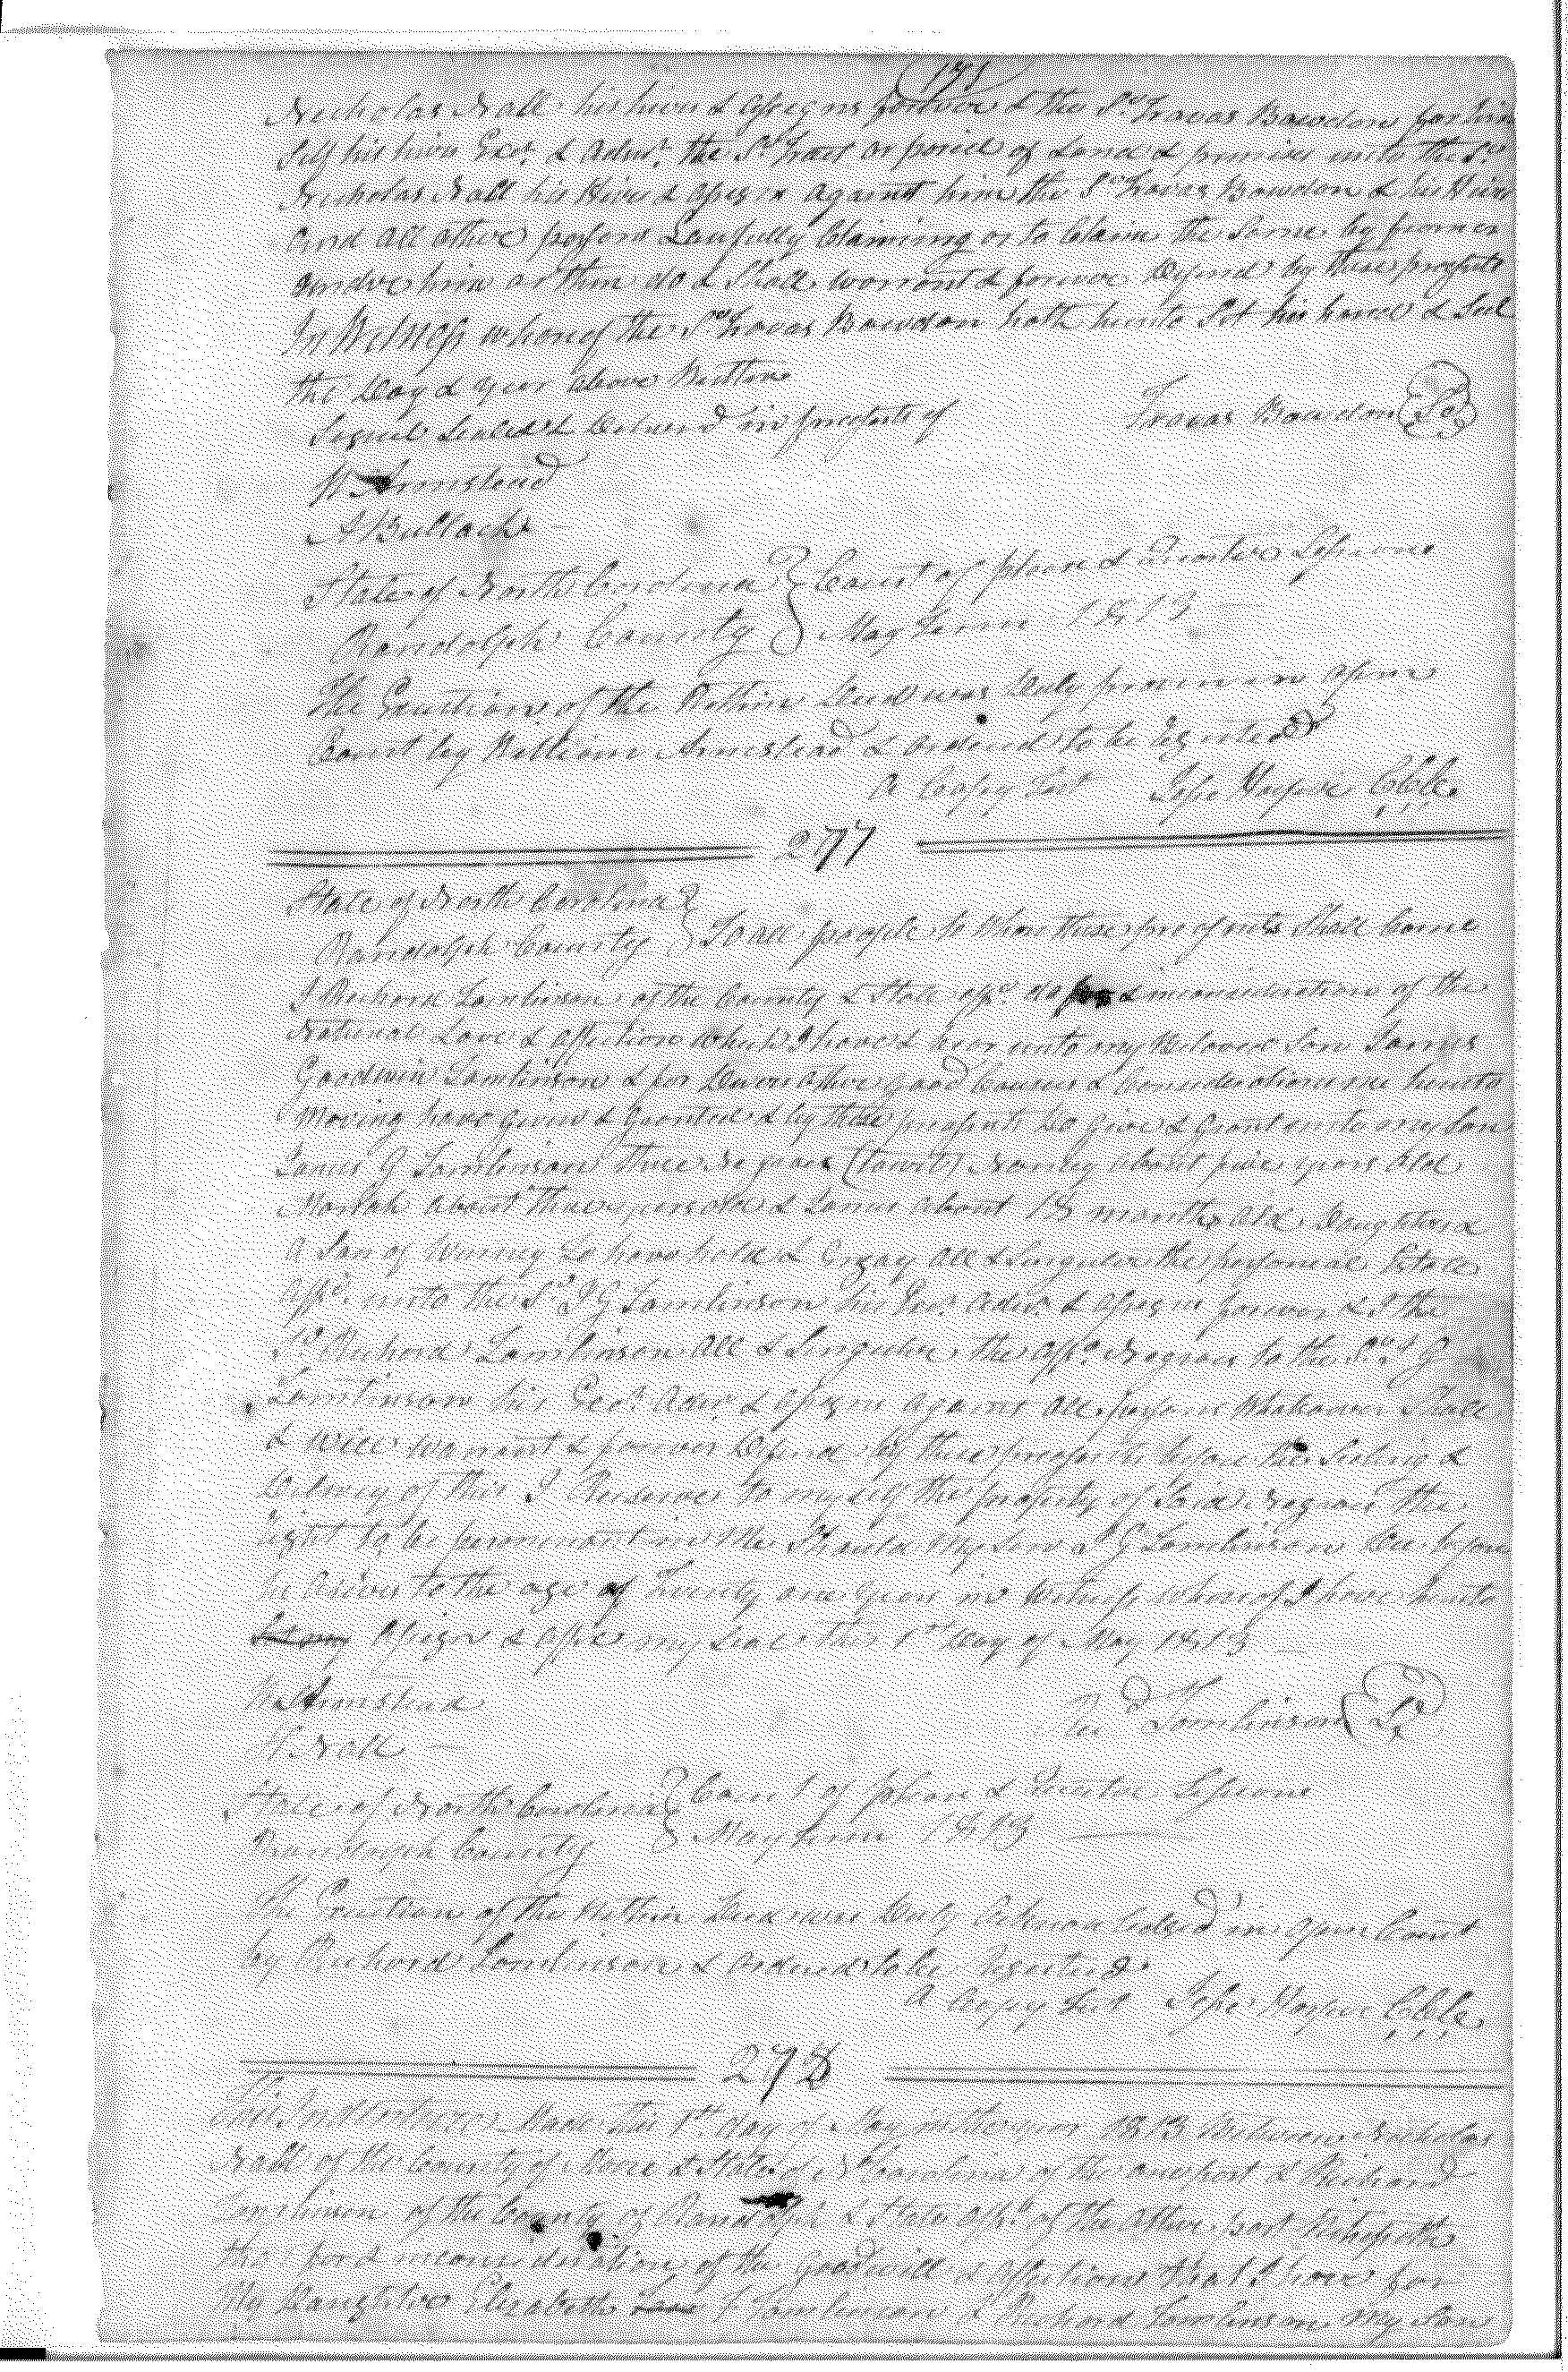 191
Nicholas Nall his heirs & assigns forever & the Sd Travas Bawdon for him
Self his heirs Exrs & Admr the Sd Tract or parcel of Land & premises unto the Sd
Nicholas Nall his Heirs & assigns against him the Sd Travas Bawdon & his Heirs
and all other persons Lawfully Claiming or to Claim the Same by from or
under him or them do & Shall warrant & forever Defend by these presents
In Witness whereof the Sd Travas Bawdon hath hereunto Set his hand & Seal
the Day & year above Written
Signed Sealed & Deliverd in presents of Travas Bawdon Se
W Armstead
A Bullock
State of North Carolina } Court of pleas & Quarter Sessions
Randolph County } May Term 1813
The Execution of the Within Deed was Duly proven in open
Court by William Armstead & ordered to be Registered
A Coppy Test Jesse Harper CCC
277
State of North Carolina
Randolph County } To all people to Whom these presents Shall Come
I Richard Tomlinson of the County & State afsd do for & in consideration of the
Natural Love & affection which I have & bear unto my Beloved Son James
Goodwin Tomlinson & for Divers other good Causes & Considerations me hereunto
moving have given & Granted & by these presents Do give & Grant unto my Son
James G Tomlinson Three Negroes (towit) Nanney about five years old
Mariah about Three years old & James about 18 months old Daughters &
a Son of Winney To have hold & Enjoy all & Singular the personal Estate
afsd unto the Sd J G Tomlinson his Exrs Admr & assigns forever & I the
Sd Richard Tomlinson all & Singular the afsd Negroes to the Sd J G
Tomlinson his Exr Admr & assigns against all persons Whatsoever Shall
& will warrant & forever Defend by these presents before the Sealing &
Delivery of this I Reserve to myself the property of Said Negroes the
right to be permanent in Me Should My Son J G Tomlinson Die before
he arives to the age of Twenty one years in Witness whereof I have hereunto
assign & affix my Seal this 1st Day of May 1813
W Armstead Richd Tomlinson Se
N Nall
State of North Carolina } Court of pleas & Quarter Sessions
Randolph County } May Term 1813
The Execution of the Within Deed was Duly Acknowledged in open Court
by Richard Tomlinson & ordered to be Registerd
A Coppy Test Jesse Harper CCC
278
This Indenture Made this 1st day of May in the year 1813 Between Nicholas
Nall of the County of Moore & State of N Carolina of the one part & Richard
Tomlinson of the County of Randolph & State afsd of the other part Witnesseth
that for & in consideration of the goodwill & affections that I have for
My Daughter Elizabeth Tomlinson & Richard Tomlinson My Son